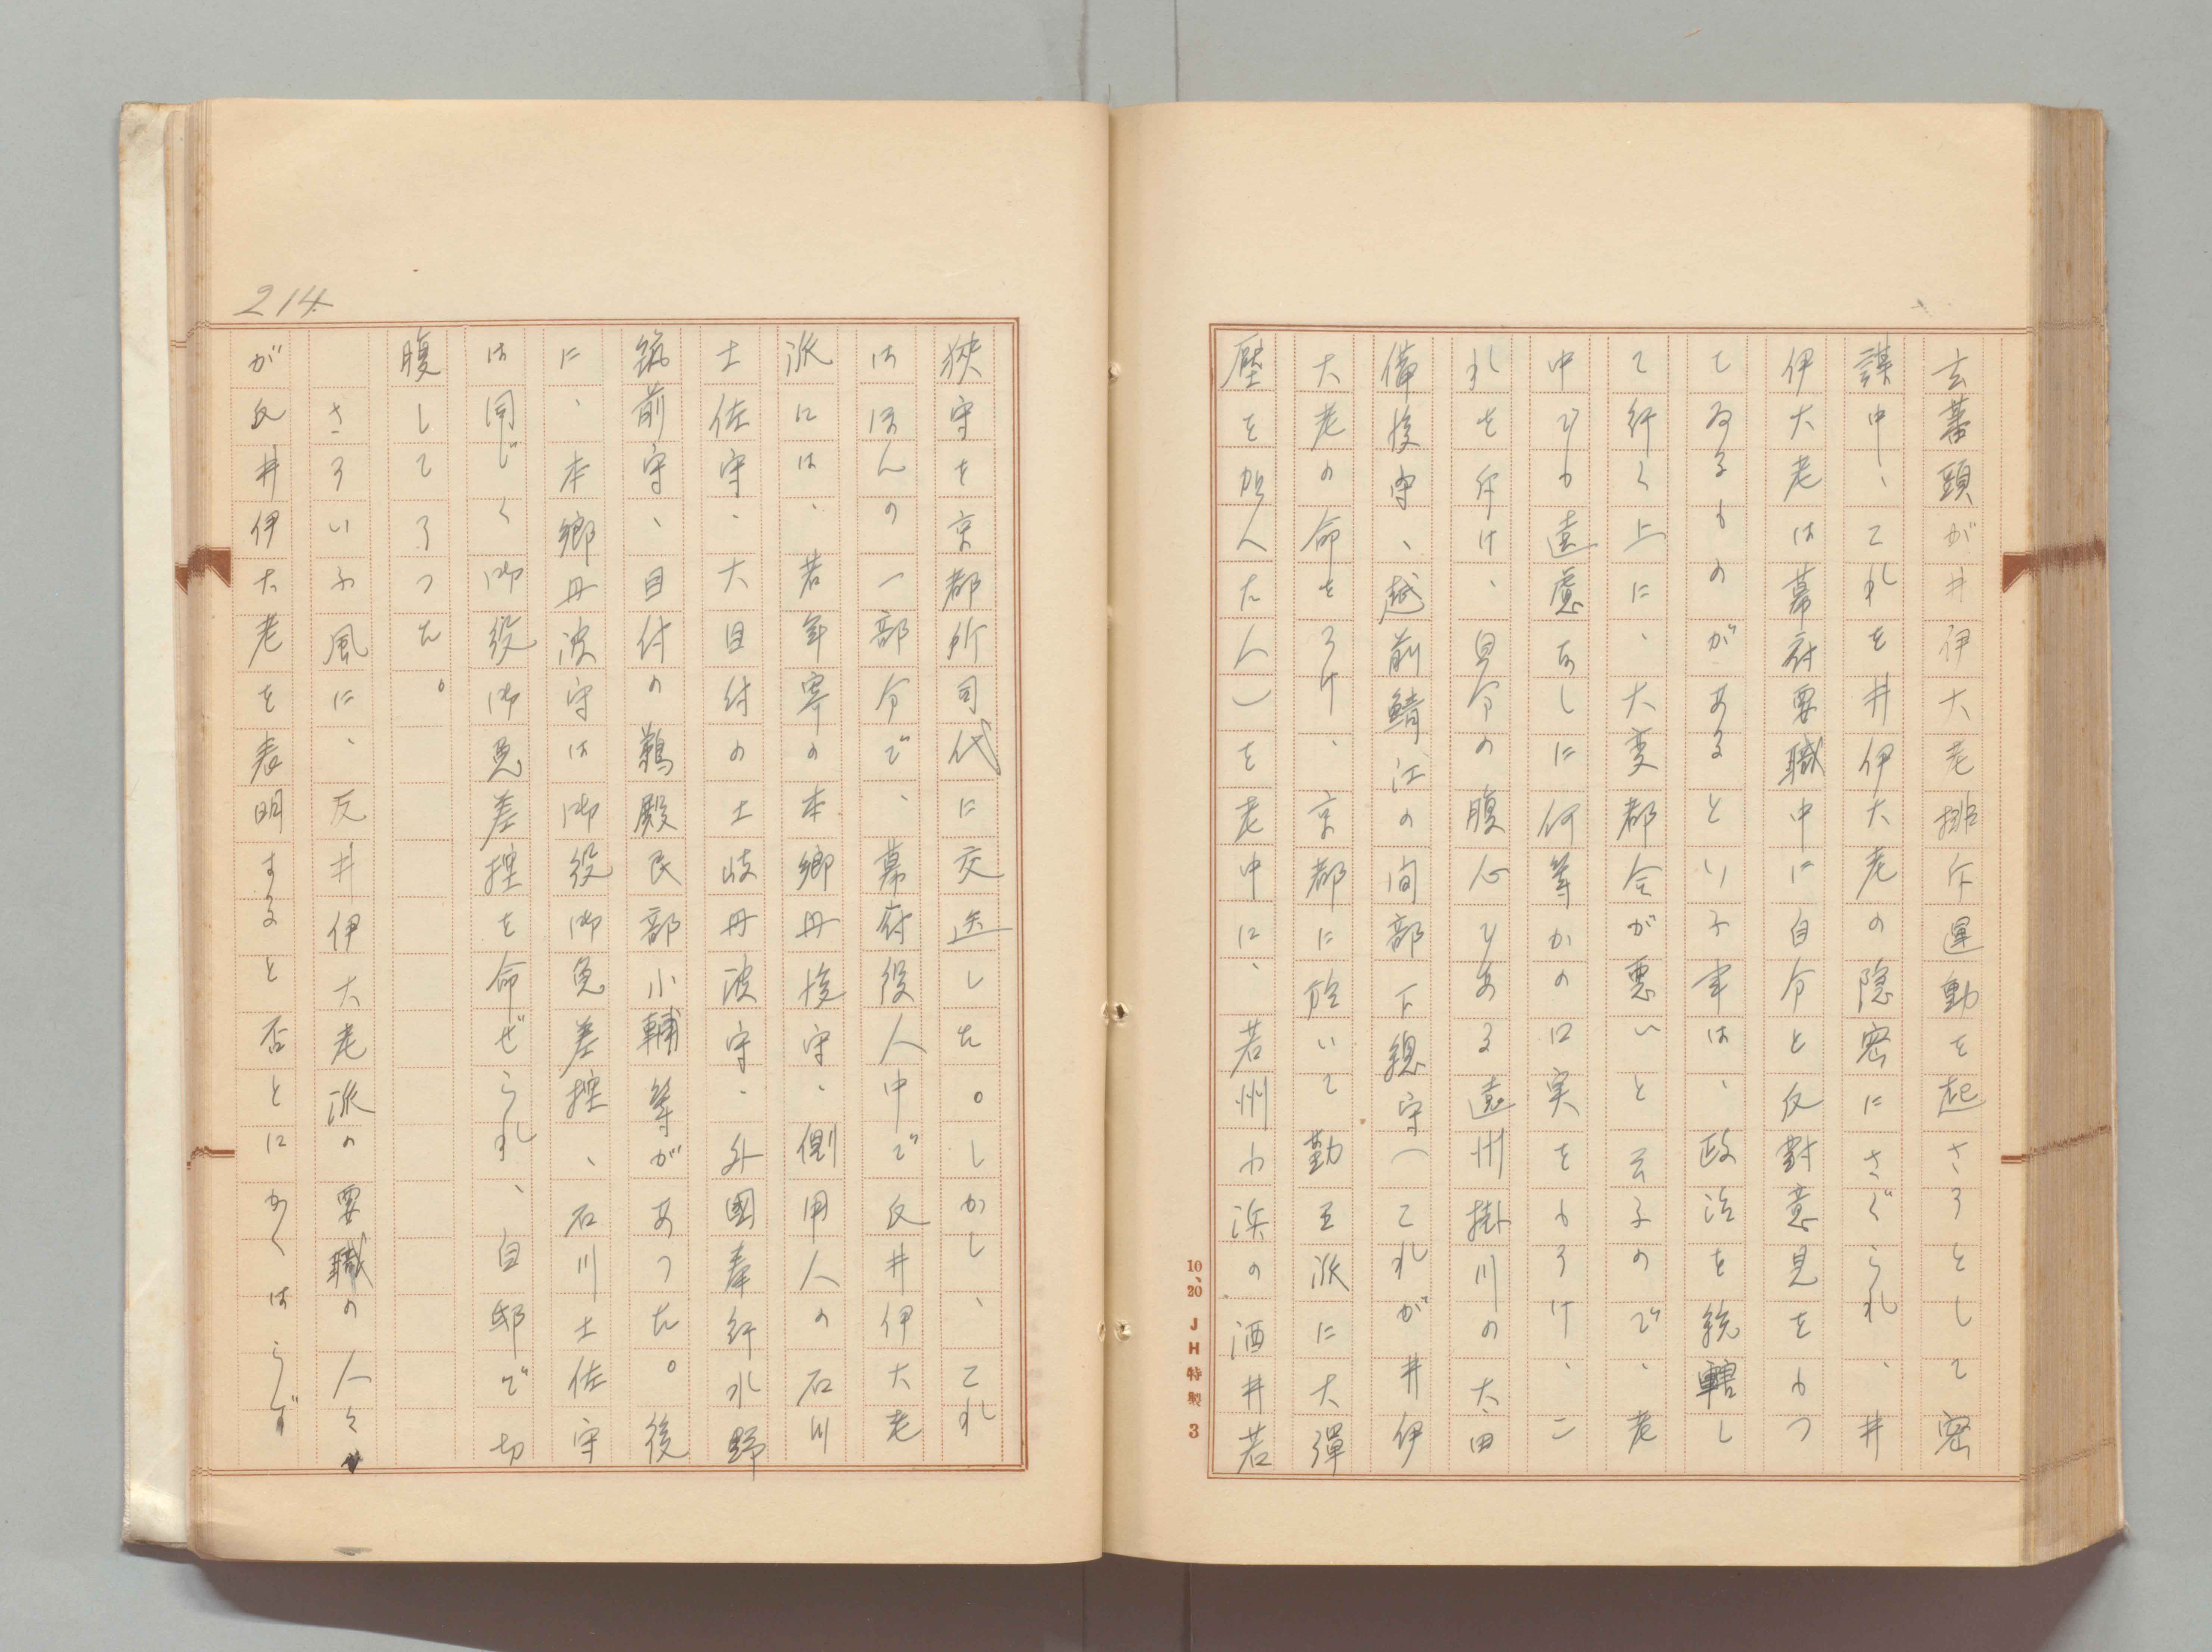 玄蕃頭が井伊大老排斥運動を起さうとして密
謀中、これを井伊大老の隠密にさぐられ、井
伊大老は幕府要職中に自分と反對意見をもつ
てゐるものがあるといふ事は、政治を統轄し
て行く上に、大変都合が悪いと云ふので、老
中でも遠慮なしに何等かの口実をもうけ、こ
れを斥け、自分の腹心である遠州掛川の太田
備後守、越前鯖江の间部下總守(これが井伊
大老の命をうけ、京都に於いて勤王派に大彈
壓を加へた人)を老中に、若州小浜の酒井若
10、20 JH特製 3
狹守を京都所司代に交迭した。しかし、これ
はほんの一部分で、幕府役人中で反井伊大老
派には、若年寄の本郷丹後守、側用人の石川
土佐守、大目付の土岐丹波守、外國奉行水野
筑前守、目付の鵜殿民部小輔等があつた。後
に、本郷丹波守は御役御免差控、石川土佐守
は同じく御役御免差控を命ぜられ、自邸で切
腹してゐつた。
さういふ風に、反井伊大老派の要職の人々
が反井伊大老を表明すると否とにかくはらず
214